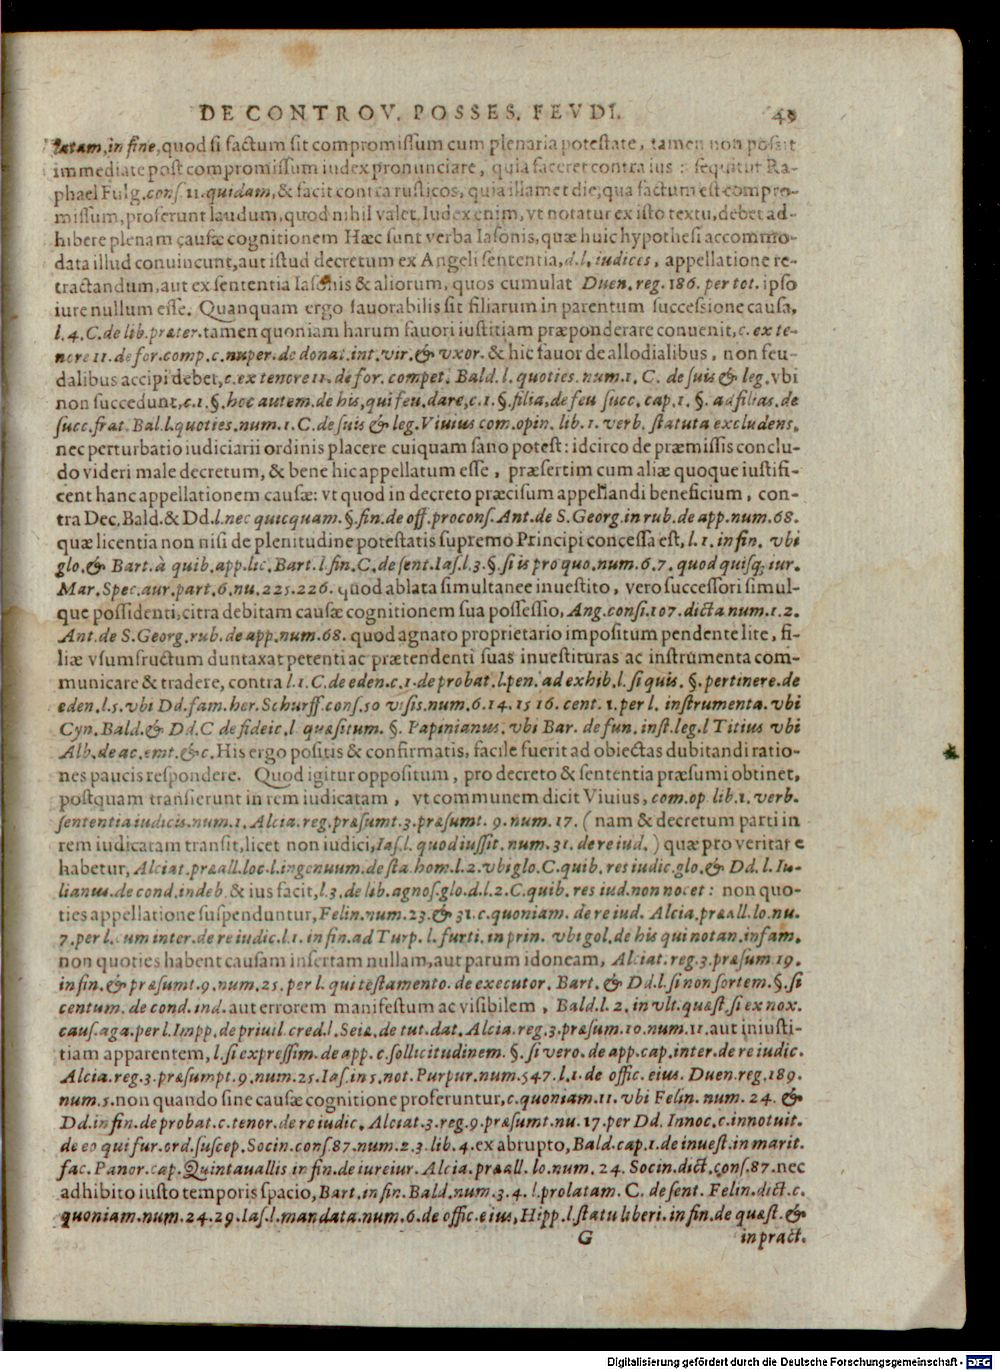 DE CONTROV. POSSES. FEVDI. 49
latam.in fine,quod si factum sit compromissum cum plenaria potestate, tamen non possit
immediate post compromissum iudex pronunciare, quia faceret contra ius : sequitur Ra-
phael Fulg.cons.11.quidam,& facit contra rusticos, quia illamet die, qua factum est compro-
missum, proferunt laudum, quod nihil valet. Iudex enim, vt notatur ex isto textu, debet ad-
hibere plenam causæ cognitionem Hæc sunt verba Iasonis, quæ huic hypothesi accommo-
data illud conuincunt, aut istud decretum ex Angeli sententia, d.l. iudices, appellatione re-
tractandum, aut ex sententia Iasonis & aliorum, quos cumulat Duen. reg. 186. per tot. ipso
iure nullum esse. Quanquam ergo fauorabilis sit filiarum in parentum successione causa,
l.4.C.de lib.præter.tamen quoniam harum fauori iustitiam præponderare conuenit, c. ex te-
nere 11.de for.comp.c.nuper.de donat.int.vir.& vxor. & hic fauor de allodialibus, non feu-
dalibus accipi debet, c.ex tenore 11. de for. compet. Bald. l. quoties. num.1. C. de suis & leg. vbi
non succedunt, c.1.§.hoc autem.de his, qui feu.dare, c.1.§.filia, de feu succ. cap.1. §. ad filias.de
succ.frat.Bal.l.quoties.num.1.C.de suis & leg.Viuius com.opin. lib.1. verb. statuta excludens.
nec perturbatio iudiciarii ordinis placere cuiquam sano potest: idcirco de præmissis conclu-
do videri male decretum, & bene hic appellatum esse, præsertim cum aliæ quoque iustifi-
cent hanc appellationem causæ: vt quod in decreto præcisum appellandi beneficium, con-
tra Dec. Bald.& Dd.l.nec quicquam.§.fin.de off.procons.Ant.de S.Georg.in rub.de app.num.68.
quæ licentia non nisi de plenitudine potestatis supremo Principi concessa est, l.1. in fin. vbi
glo.& Bart.à quib.app.lic.Bart.l.fin.C.de sent.Ias.l.3.§.si is pro quo.num.6.7. quod quisq; iur.
Mar.Spec.aur.part.6.nu.225.226. quod ablata simultanee inuestito, vero successori simul-
que possidenti, citra debitam causæ cognitionem sua possessio, Ang.consi.107.dicta num.1.2.
Ant.de S.Georg.rub.de app.num.68. quod agnato proprietario impositum pendente lite, fi-
liæ vsumfructum duntaxat petenti ac prætendenti suas inuestituras ac instrumenta com-
municare & tradere, contra l.1.C.de eden.c.1.de probat.l.pen. ad exhib.l. si quis. §. pertinere.de
eden.l.5.vbi Dd.fam.her.Schurff.cons.50 visis.num.6.14.15 16. cent.1.per l. instrumenta. vbi
Cyn. Bald.& Dd.C de fideic.l quæsitum. §. Papinianus. vbi Bar. de fun. inst.leg.l Titius vbi
Alb.de ac.emt.&c. His ergo positis & confirmatis, facile fuerit ad obiectas dubitandi ratio-
nes paucis respondere. Quod igitur oppositum, pro decreto & sententia præsumi obtinet,
postquam transierunt in rem iudicatam, vt communem dicit Viuius, com.op lib.1. verb.
sententia iudicis.num.1. Alcia.reg.præsumt.3.præsumt. 9. num.17. ( nam & decretum parti in
rem iudicatam transit, licet non iudici, Ias.l. quod iussit. num. 31. de re iud. ) quæ pro veritate
habetur, Alciat.præall.loc.l.ingenuum.de sta.hom.l.2.vbi glo.C.quib.res iudic.glo.& Dd.l. Iu-
lianus.de cond.indeb. & ius facit, l.3.de lib.agnos.glo.d.l.2.C.quib. res iud.non nocet : non quo-
ties appellatione suspenduntur, Felin.num.23.& 31.c.quoniam. de re iud. Alcia.præall. lo.nu.
7.per l. cum inter.de re iudic.l.1. in fin.ad Turp.l.furti.in prin. vbi gol.de his qui notan.infam.
non quoties habent causam insertam nullam, aut parum idoneam, Alciat.reg.3.præsum 19.
in fin.& præsumt.9.num.25.per l. qui testamento. de executor. Bart. & Dd.l.si non sortem.§.si
centum. de cond.ind. aut errorem manifestum ac visibilem, Bald.l. 2. in vlt.quæst.si ex nox.
caus.aga.per l.Impp.de priuil.cred.l.Seiæ.de tut.dat. Alcia.reg.3.præsum.10.num 11. aut iniusti-
tiam apparentem, l.si expressim.de app.c.sollicitudinem. §. si vero. de app.cap.inter.de re iudic.
Alcia.reg.3.præsumpt.9.num.25.Ias.in 5.not.Purpur.num.547.l.1.de offic.eius. Duen.reg.189.
num.5. non quando sine causæ cognitione proferuntur, c.quoniam.11. vbi Felin. num. 24. &
Dd.in fin.de probat.c.tenor.de re iudic. Alciat.3.reg.9.præsumt.nu.17.per Dd. Innoc.c.innotuit.
de eo qui fur.ord.suscep.Socin.cons.87.num.2.3.lib.4. ex abrupto, Bald.cap.1.de inuest.in marit.
fac.Panor.cap.Quintauallis in fin.de iureiur. Alcia. præall. lo.num. 24. Socin.dict.cons.87. nec
adhibito iusto temporis spacio, Bart.in fin. Bald.num.3.4. l.prolatam. C. de sent. Felin.dict.c.
quoniam.num.24.29.Ias.l.mandata.num.6.de offic.eius, Hipp.l.statu liberi.in fin.de quæst.&
G in pract.
Digitalisierung gefördert durch die Deutsche Forschungsgemeinschaft - DFG